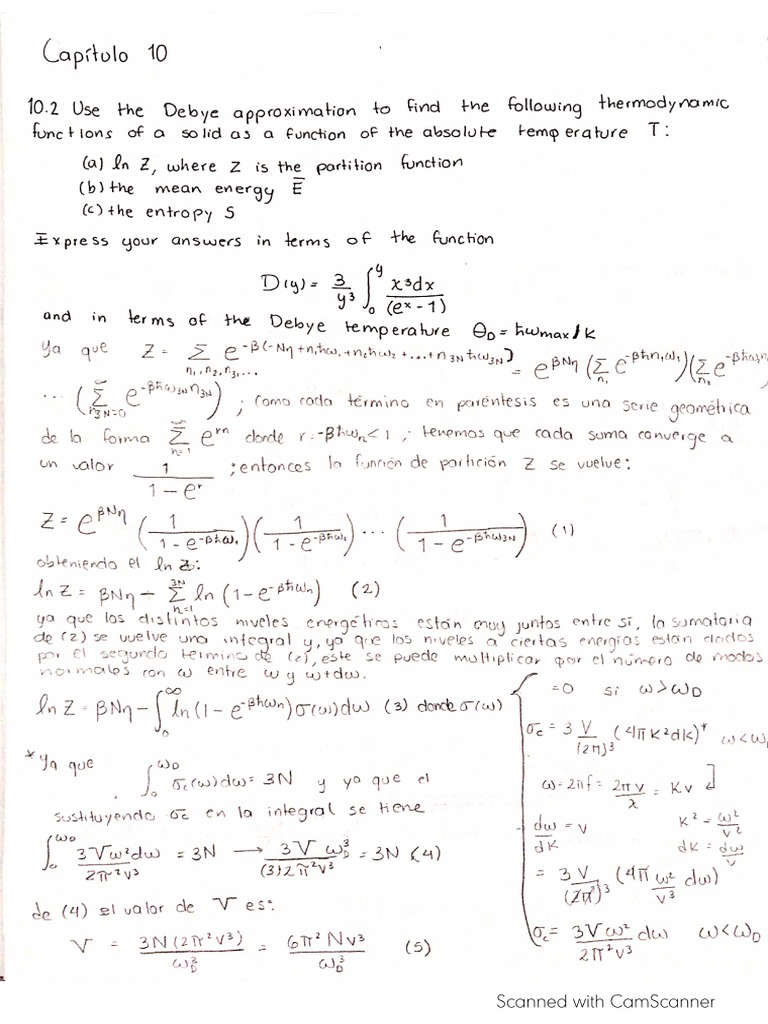 Capítulo 10
10.2 Use the Debye approximation to find the following thermodynamic
functions of a solid as a function of the absolute temperature T:
(a) ln Z, where Z is the partition function
(b) the mean energy E̅
(c) the entropy S
Express your answers in terms of the function
D(y) = 3/y³ ∫₀^y x³dx/(eˣ - 1)
and in terms of the Debye temperature Θ_D = ħω_max/K
Ya que Z = Σ_{n₁,n₂,n₃,...} e^{-β(-Nη+n₁ħω₁+n₂ħω₂+...+n_{3N}ħω_{3N})} = e^{βNη} (Σ_{n₁} e^{-βħn₁ω₁})(Σ_{n₂} e^{-βħω₂n
... (Σ_{n_{3N}=0}^∞ e^{-βħω_{3N}n_{3N}}) ; como cada término en paréntesis es una serie geométrica
de la forma Σ_{n=1}^∞ e^{rn} donde r=-βħω_n<1 ; tenemos que cada suma converge a
un valor 1/(1-e^r) ; entonces la función de partición Z se vuelve:
Z = e^{βNη} (1/(1-e^{-βħω₁}))(1/(1-e^{-βħω₂})) ... (1/(1-e^{-βħω_{3N}})) (1)
obteniendo el ln Z:
ln Z = βNη - Σ_{n=1}^{3N} ln (1-e^{-βħω_n}) (2)
ya que los distintos niveles energéticos están muy juntos entre si, la sumatoria
de (2) se vuelve una integral y, ya que los niveles a ciertas energías están dados
por el segundo termino de (2), este se puede multiplicar por el número de modos
normales con ω entre ω y ω+dω.
ln Z = βNη - ∫₀^∞ ln(1-e^{-βħω_n})σ(ω)dω (3) donde σ(ω)
=0 si ω>ω_D
σ_c = 3 V/(2π)³ (4πK²dk)* ω<ω_D
ω=2πf = 2πv/λ = Kv
dω/dK = v K² = ω²/v²
dK = dω/v
= 3 V/(2π)³ (4π ω²/v³ dω)
σ_c = 3Vω²/2π²v³ dω ω<ω_D
*Ya que ∫₀^{ω_D} σ_c(ω)dω = 3N y ya que el
sustituyendo σ_c en la integral se tiene
∫₀^{ω_D} 3Vω²dω/2π²v³ = 3N → 3V ω_D³/(3)2π²v³ = 3N (4)
de (4) el valor de V es:
V = 3N(2π²v³)/ω_D³ = 6π²Nv³/ω_D³ (5)
Scanned with CamScanner